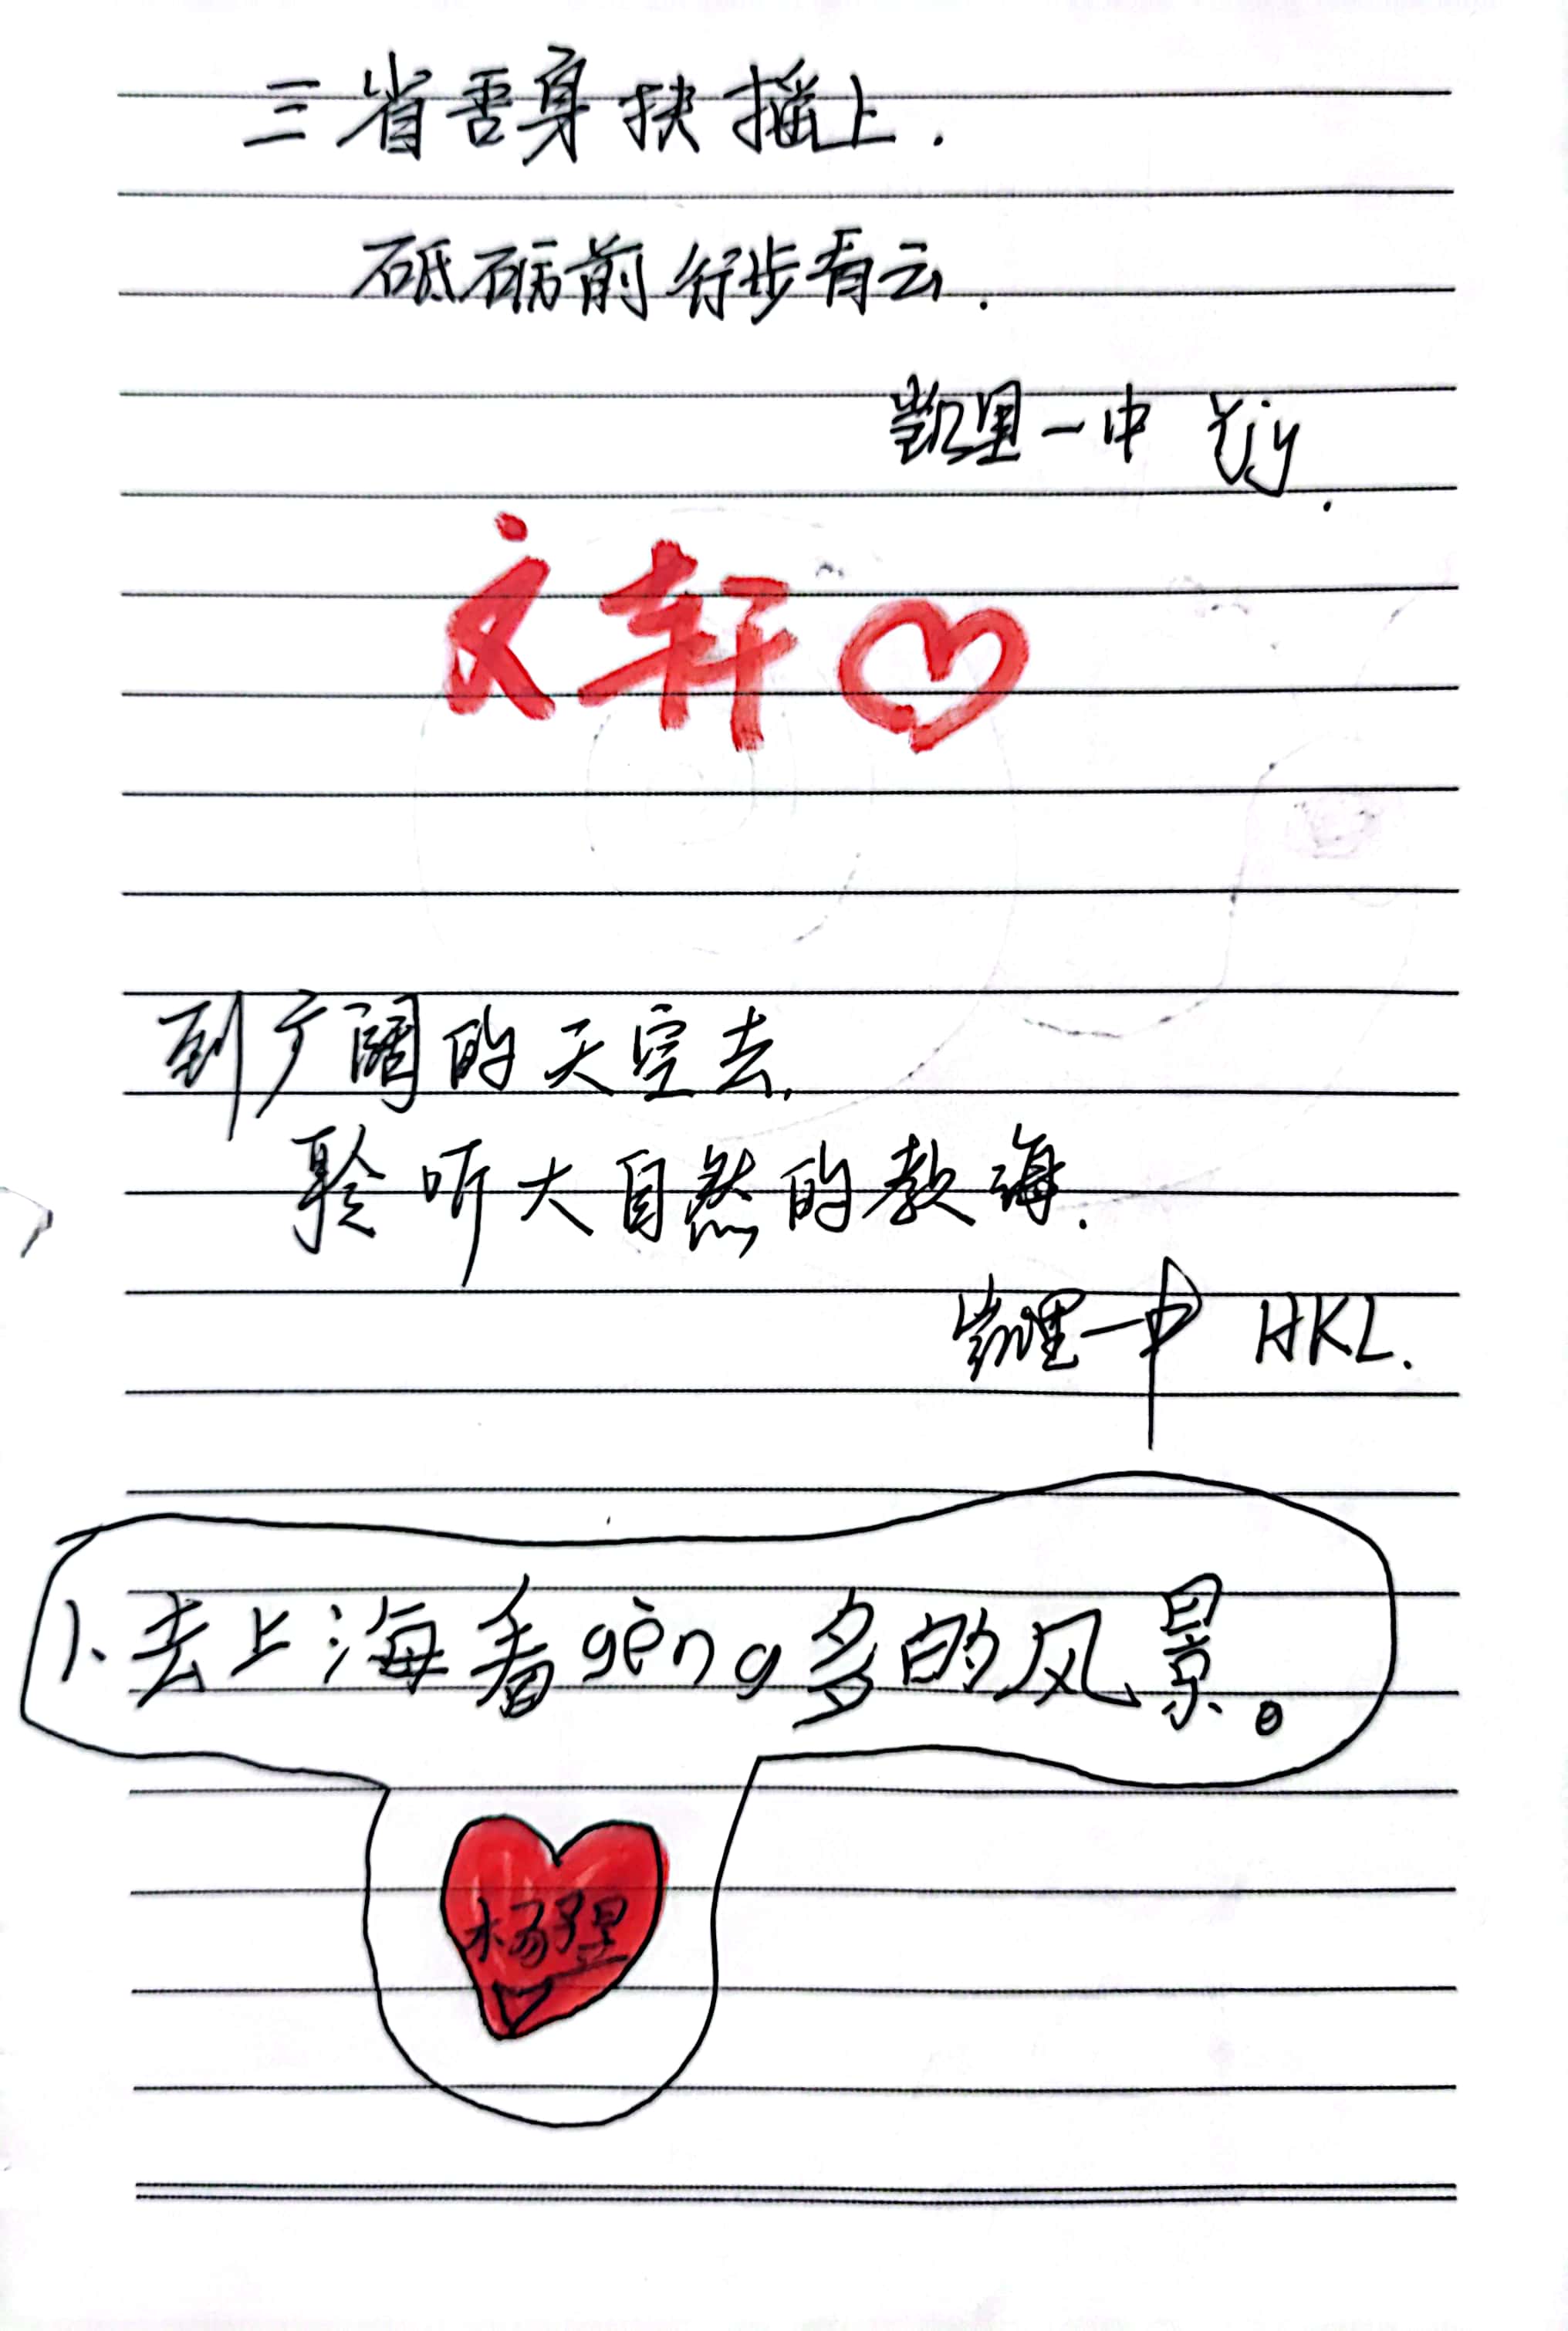 三省吾身扶摇上.
砥砺前行步有云.
凯里一中 yjy.
文轩
到广阔的天空去,
聆听大自然的教诲.
凯里一中 HKL.
1、去上海看gèng多的风景。
杨